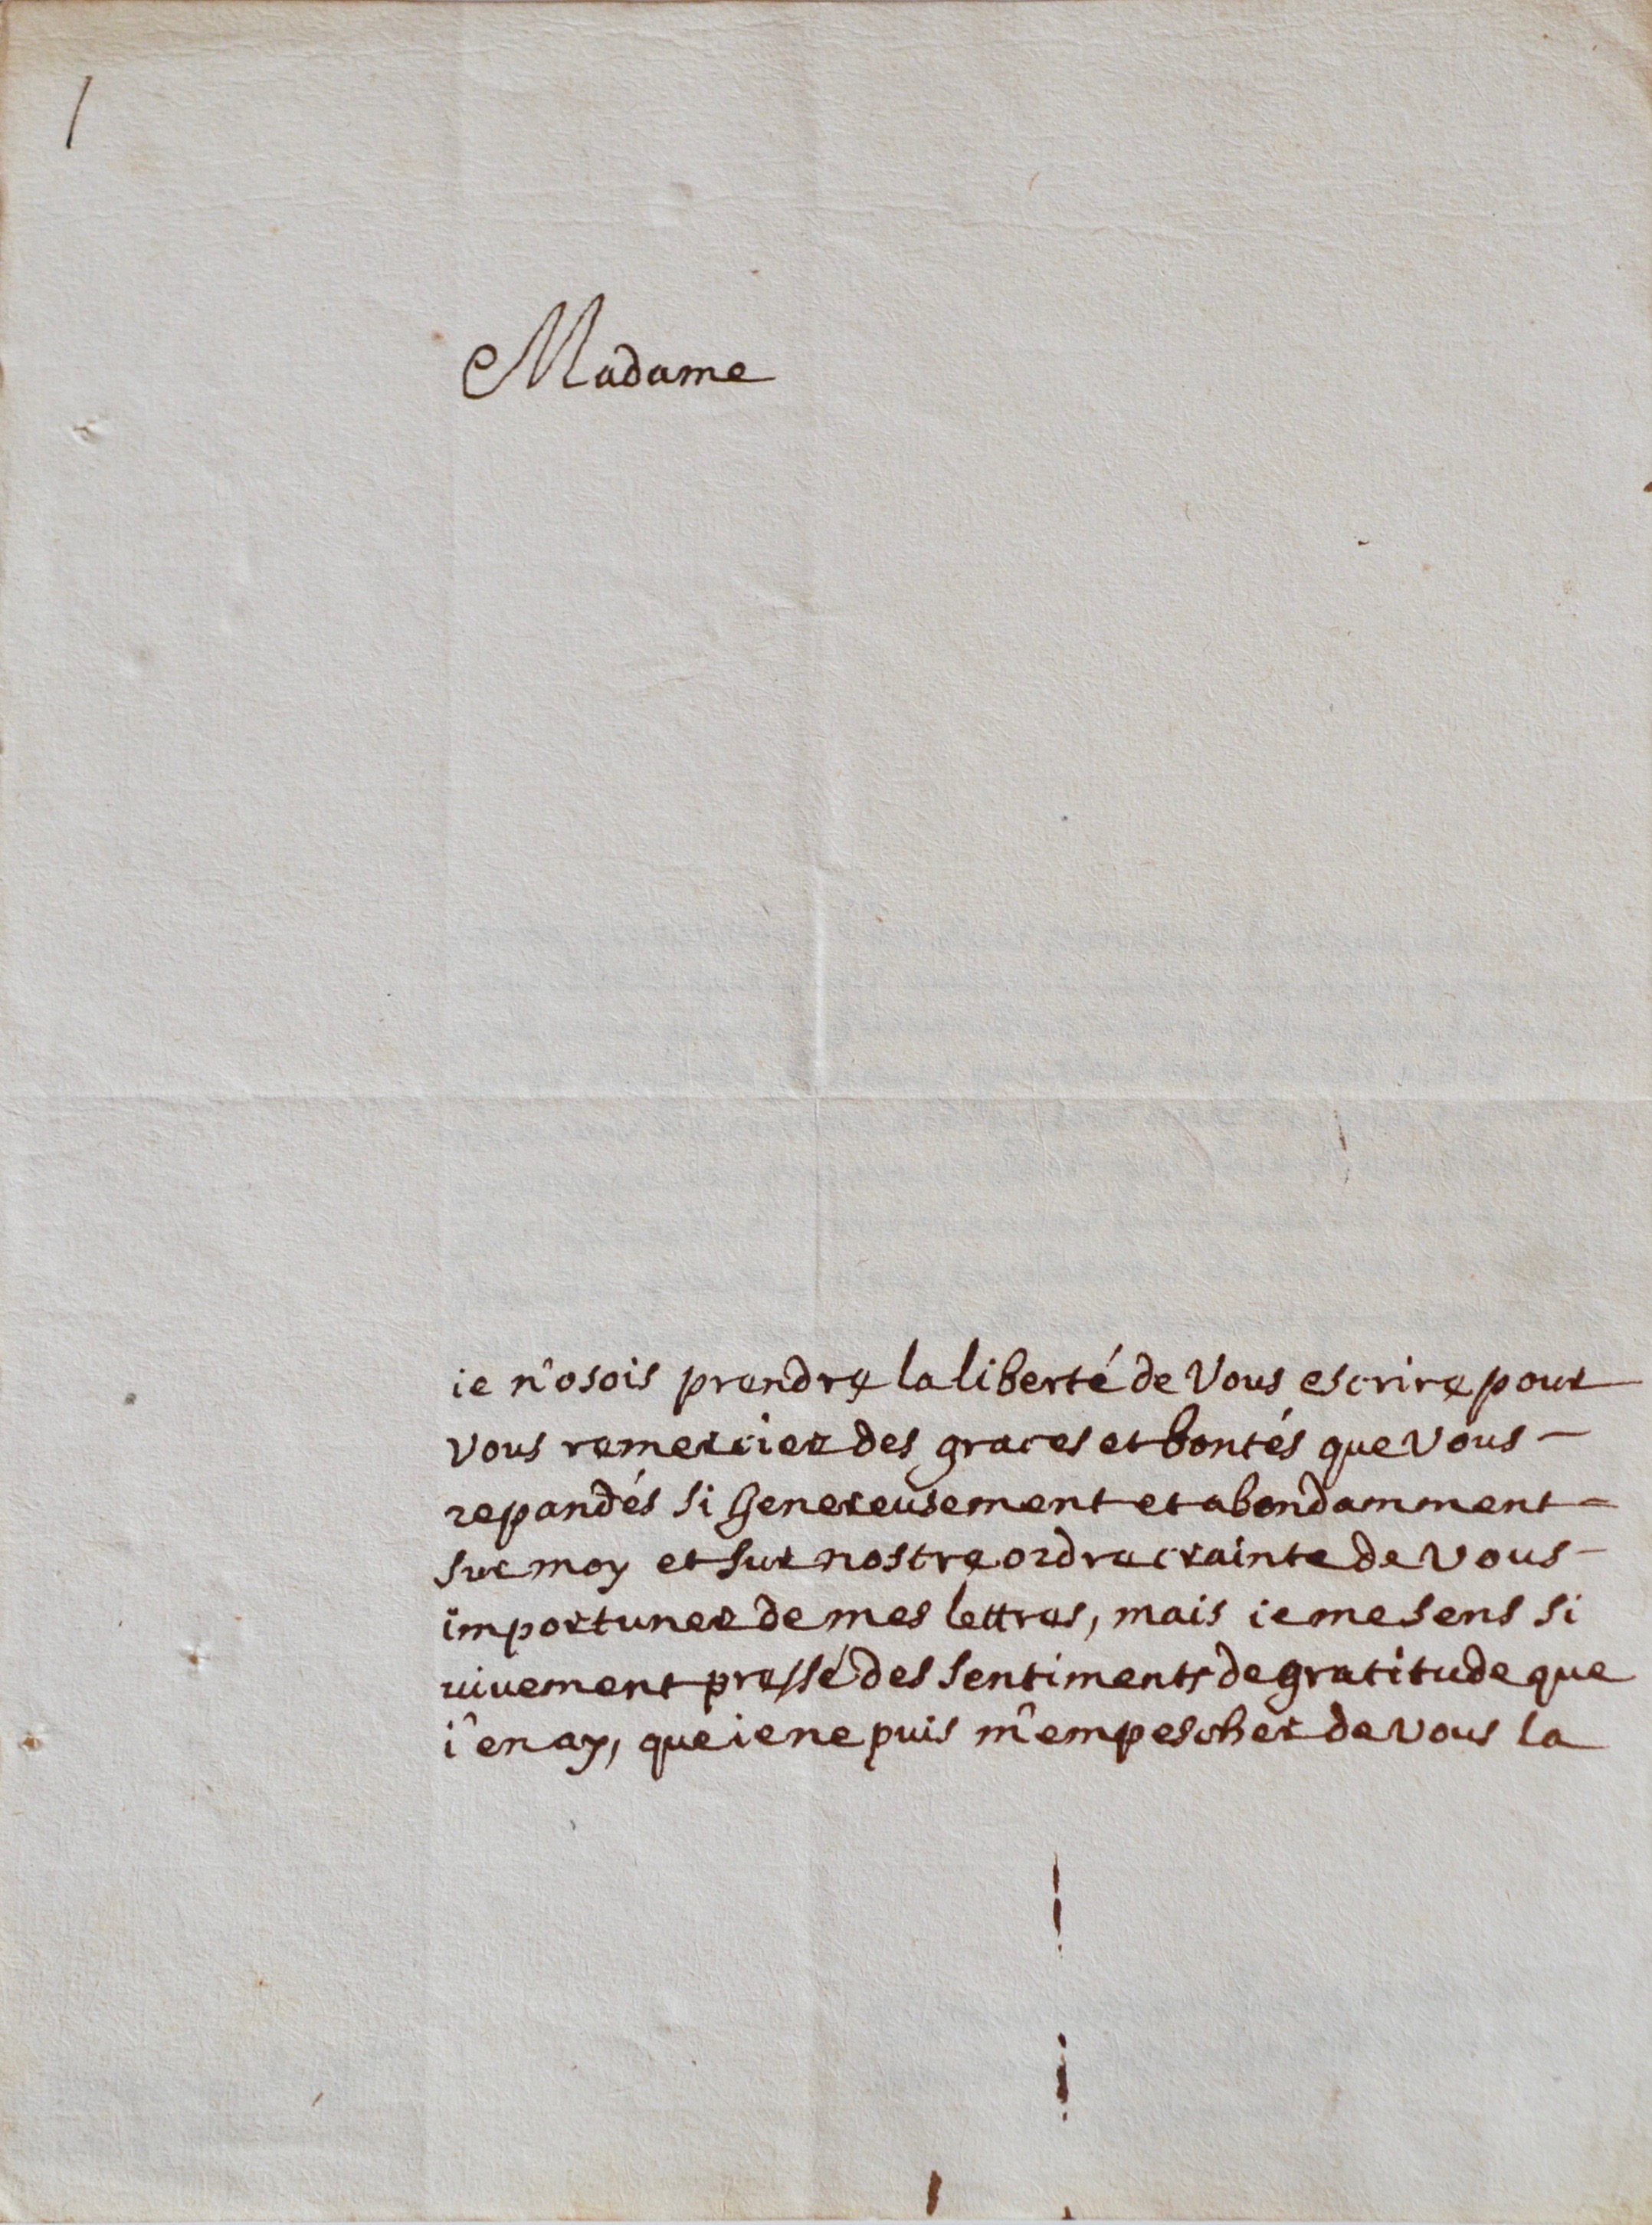 1
Madame
ie n'osois prendre la liberté de vous escrire pour
vous remercier des graces et bontés que vous
repandés si genereusement et abondamment
sur moy et sur nostre ordre crainte de vous
importuner de mes lettres, mais ie me sens si
uivement pressé des sentiments de gratitude que
i'en ay, que ie ne puis m'empescher de vous la